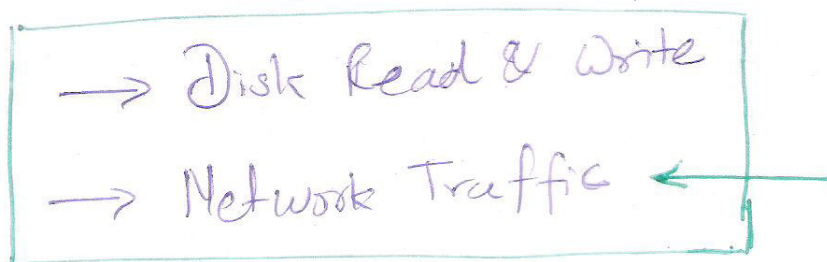 → Disk Read & Write
→ Network Traffic ←